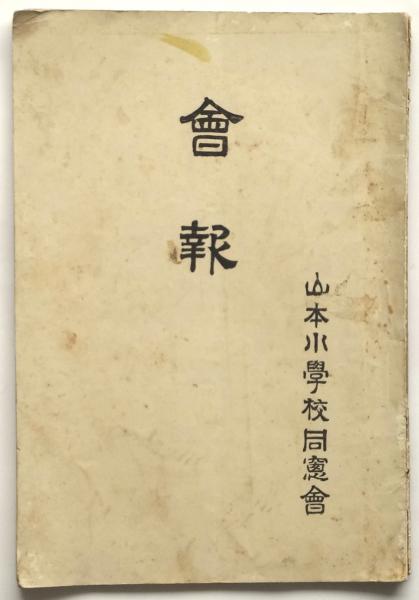 會報
山本小學校同窻會